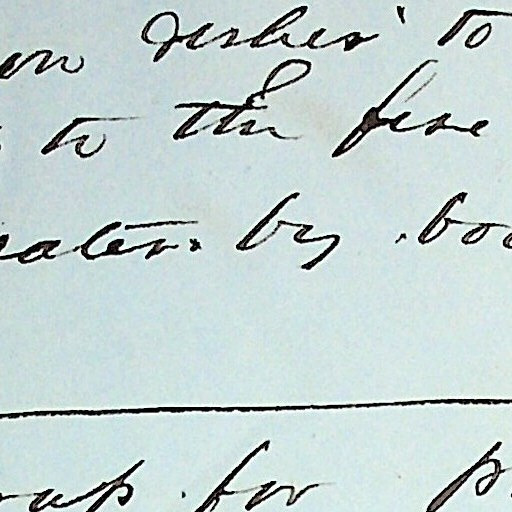 on dishes to
to the fire
eater by bo
up for p